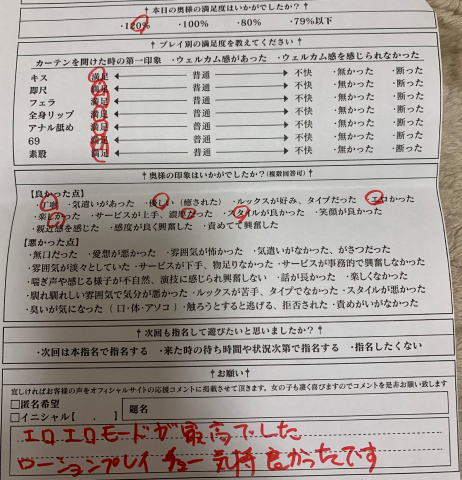 † 本日の奥様の満足度はいかがでしたか? †
・120% ・100% ・80% ・79%以下
† プレイ別の満足度を教えてください †
カーテンを開けた時の第一印象 ・ウェルカム感があった ・ウェルカム感を感じられなかった
キス 満足 普通 不快 ・無かった ・断った
即尺 満足 普通 不快 ・無かった ・断った
フェラ 満足 普通 不快 ・無かった ・断った
全身リップ 満足 普通 不快 ・無かった ・断った
アナル舐め 満足 普通 不快 ・無かった ・断った
69 満足 普通 不快 ・無かった ・断った
素股 満足 普通 不快 ・無かった ・断った
†奥様の印象はいかがでしたか?(複数回答可)†
【良かった点】
・丁寧 ・気遣いがあった ・優しい(癒された) ・ルックスが好み、タイプだった ・エロかった
・楽しかった ・サービスが上手、濃厚だった ・スタイルが良かった ・笑顔が良かった
・親近感を感じた ・感度が良く興奮した ・責めてて興奮した
【悪かった点】
・無口だった ・愛想が悪かった ・雰囲気が怖かった ・気遣いがなかった、がさつだった
・雰囲気が淡々としていた ・サービスが下手、物足りなかった ・サービスが事務的で興奮しなかった
・喘ぎ声や感じる様子が不自然、演技に感じられ興奮しない ・話が長かった ・楽しくなかった
・馴れ馴れしい雰囲気で気分が悪かった ・ルックスが苦手、タイプでなかった ・スタイルが悪かった
・臭いが気になった(口・体・アソコ) ・触ろうとすると逃げる、拒否された ・責めがいがなかった
† 次回も指名して遊びたいと思いましたか? †
・次回は本指名で指名する ・来た時の待ち時間や状況次第で指名する ・指名したくない
†お願い†
宜しければお客様の声をオフィシャルサイトの応援コメントに掲載させて頂きます。女の子も凄く喜びますのでコメントを是非お願い致します
□匿名希望
□イニシャル【 . 】 題名
エロエロモードが最高でした
ローションプレイ チュー 気持良かったです